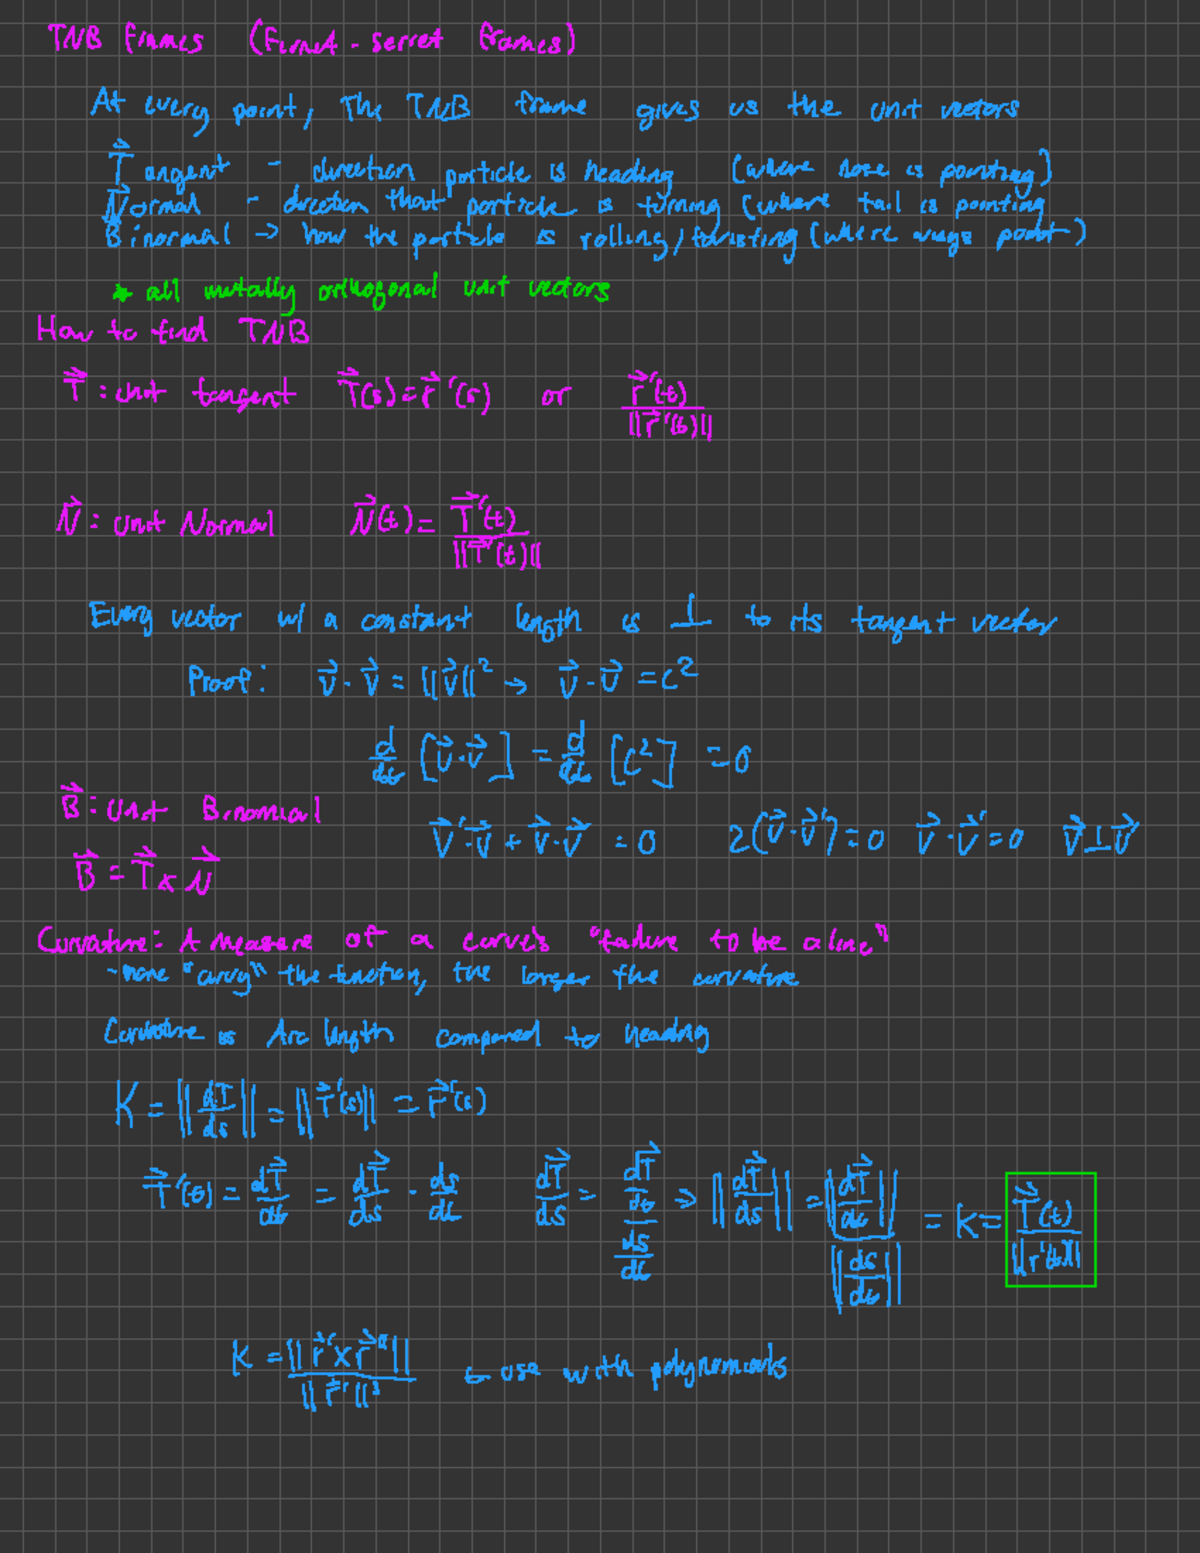 TNB Frames (Frenet - serret frames)
At every point, The TNB frame gives us the unit vectors
T⃗angent - direction particle is heading (where nose is pointing)
N⃗ormal - direction that particle is turning (where tail is pointing
B⃗inormal -> how the particle is rolling/twisting (where wings point)
* all mutally orthogonal unit vectors
How to find TNB
T⃗ : unit tangent T⃗(s) = r⃗'(s) or r⃗'(t) / ||r⃗'(t)||
N⃗ : unit Normal N⃗(t) = T⃗'(t) / ||T⃗'(t)||
Every vector w/ a constant length is ⊥ to its tangent vector
Proof: v⃗ · v⃗ = ||v⃗||² → v⃗ · v⃗ = c²
d/dt [v⃗ · v⃗] = d/dt [c²] = 0
B⃗ : Unit Binomial
v⃗' · v⃗ + v⃗ · v⃗ = 0 2(v⃗ · v⃗') = 0 v⃗ · v⃗' = 0 v⃗ ⊥ v⃗'
B⃗ = T⃗ × N⃗
Curvature: A measure of a curve's "failure to be a line"
- more "curvy" the function, the larger the curvature
Curvature is Arc length compared to heading
K = ||dT/ds|| = ||T⃗'(s)|| = r⃗''(s)
T⃗'(t) = dT⃗/dt = dT⃗/ds · ds/dt dT⃗/ds = dT⃗/dt / ds/dt ⇒ ||dT⃗/ds|| = ||dT⃗/dt|| / ||ds/dt|| = K = T⃗'(t) / ||r'(t)||
K = ||r⃗' × r⃗''|| / ||r⃗'||³ ← use with polynomials